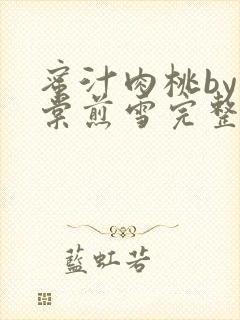 蜜汁肉桃by
棠煎雪完整
藍虹若